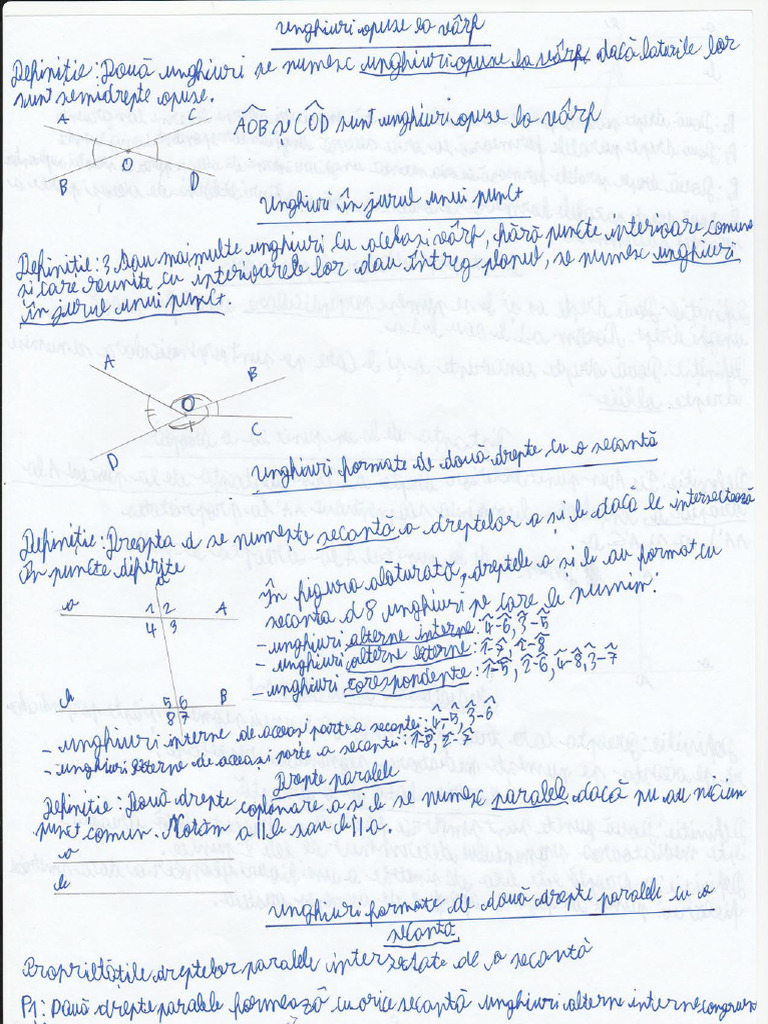 Unghiuri opuse la vârf
Definiție: Două unghiuri se numesc unghiuri opuse la vârf, dacă laturile lor
sunt semidrepte opuse.
A C
AÔB și CÔD sunt unghiuri opuse la vârf
O
B D
Unghiuri în jurul unui punct
Definiție: 3 sau mai multe unghiuri cu același vârf, fără puncte interioare comune
și care reunite cu interioarele lor dau întreg planul, se numesc unghiuri
în jurul unui punct.
A B
O
C
D
Unghiuri formate de două drepte cu o secantă
Definiție: Dreapta d se numește secantă a dreptelor a și b dacă le intersectează
în puncte diferite
d
În figura alăturată, dreptele a și b au format cu
a 1 2 A
secanta d 8 unghiuri pe care le numim:
4 3
- unghiuri alterne interne: 4̂-6̂, 3̂-5̂
- unghiuri alterne externe: 1̂-7̂, 2̂-8̂
- unghiuri corespondente: 1̂-5̂, 2̂-6̂, 4̂-8̂, 3̂-7̂
b 5 6 B
8 7
- unghiuri interne de aceeasi parte a secantei: 4̂-5̂, 3̂-6̂
- unghiuri externe de aceeasi parte a secantei: 1̂-8̂, 2̂-7̂
Drepte paralele
Definiție: Două drepte coplanare a și b se numesc paralele dacă nu au niciun
punct comun. Notăm a||b sau b||a.
a
b
Unghiuri formate de două drepte paralele cu o
secantă
Proprietățile dreptelor paralele intersectate de o secantă
P1: Două drepte paralele formează cu orice secantă unghiuri alterne interne congruen